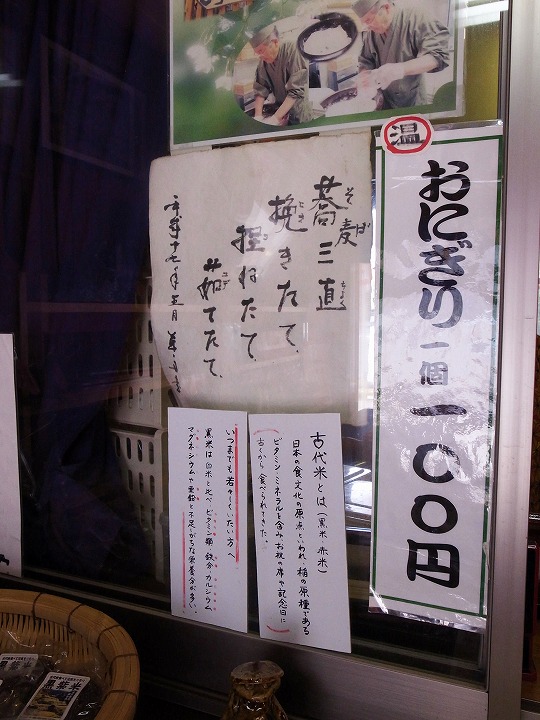 温
おにぎり一個一〇〇円
蕎麦三直
そば
ちょく
挽きたて、
ひき
捏ねたて、
茹でたて、
平成十七年五月
古代米とは（黒米 赤米）
日本の食文化の原点といわれ、稲の原種である
ビタミン・ミネラルを含みお祝の席や記念日に
古くから食べられてきた。
いつまでも若々しくいたい方へ
黒米は白米と比べビタミン類・鉄分・カルシウム
マグネシウムや亜鉛と不足しがちな栄養分が多い。
黒紫米